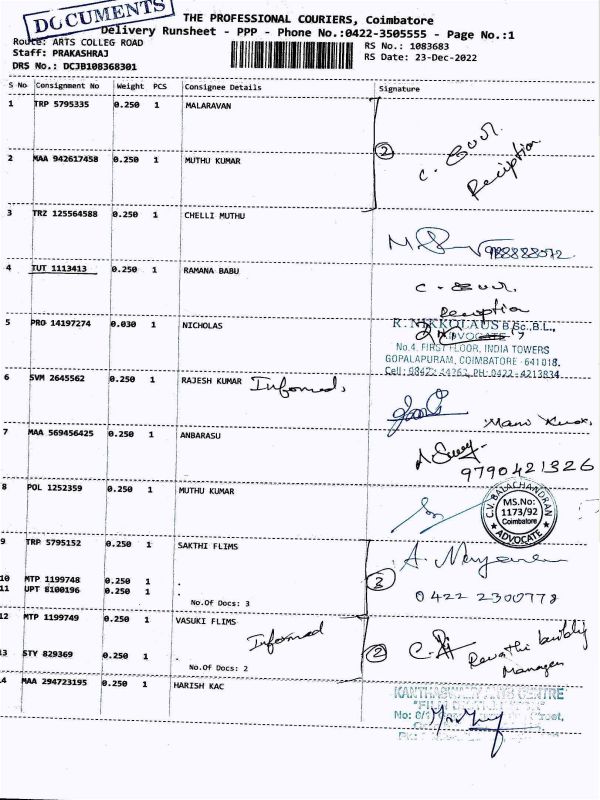 DOCUMENTS
THE PROFESSIONAL COURIERS, Coimbatore
Delivery Runsheet - PPP - Phone No.:0422-3505555 - Page No.:1
Route: ARTS COLLEG ROAD
RS No.: 1083683
Staff: PRAKASHRAJ
RS Date: 23-Dec-2022
DRS No.: DCJB108368301
S No Consignment No Weight PCS Consignee Details Signature
1 TRP 5795335 0.250 1 MALARAVAN
2 MAA 942617458 0.250 1 MUTHU KUMAR
2 Reception
3 TRZ 125564588 0.250 1 CHELLI MUTHU
4 TUT 1113413 0.250 1 RAMANA BABU
Reception
5 PRO 14197274 0.030 1 NICHOLAS
R. NIKKOLAUS B.Sc., B.L.,
ADVOCATE
No.4, FIRST FLOOR, INDIA TOWERS
GOPALAPURAM, COIMBATORE - 641018.
Cell: PH: 0422-4213834
6 SVM 2645562 0.250 1 RAJESH KUMAR Informed,
Mani
7 MAA 569456425 0.250 1 ANBARASU
9790421326
8 POL 1252359 0.250 1 MUTHU KUMAR
C.V. BALACHANDRAN
MS.No:
1173/92
Coimbatore
ADVOCATE
9 TRP 5795152 0.250 1 SAKTHI FLIMS
10 MTP 1199748 0.250 1 .
11 UPT 8100196 0.250 1 .
No.Of Docs: 3
3
0422 2300778
12 MTP 1199749 0.250 1 VASUKI FLIMS
Informed
13 STY 829369 0.250 1 .
No.Of Docs: 2
2 Revathi building
Manager
14 MAA 294723195 0.250 1 HARISH KAC
KANTHASWAMY ARTS CENTRE